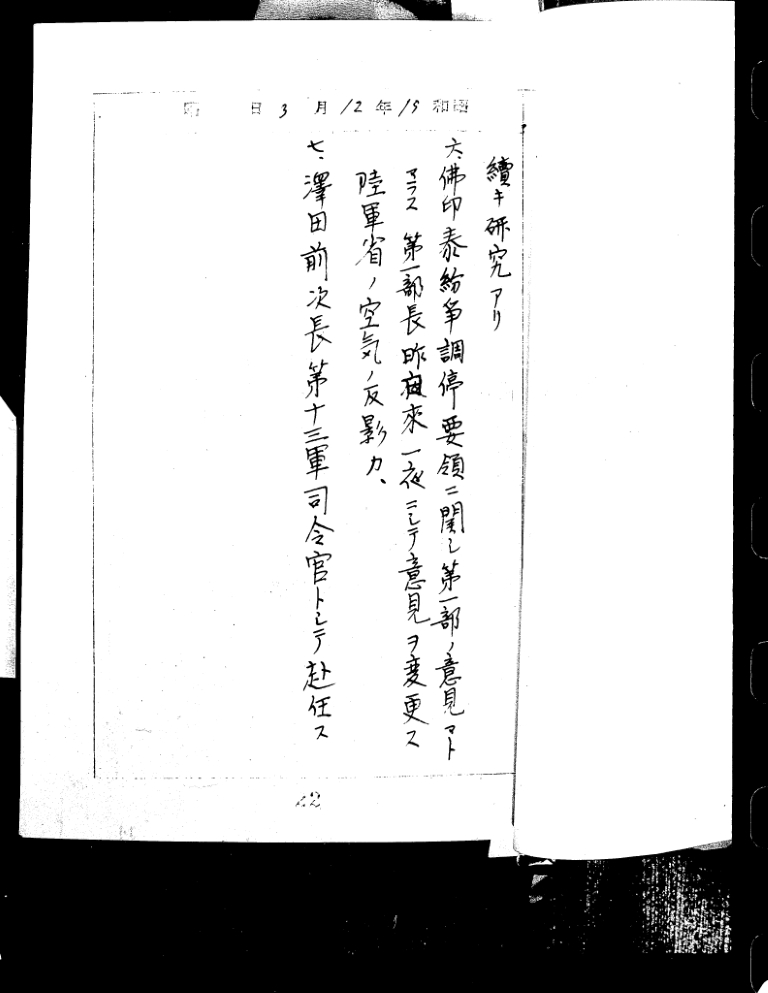 昭和15年12月3日
續キ研究アリ
六、佛印泰紛争調停要領ニ関シ第一部ノ意見マト
マラス 第一部長昨夜来一夜ニシテ意見ヲ変更ス
陸軍省ノ空気ノ反影カ、
七、澤田前次長第十三軍司令官トシテ赴任ス
22